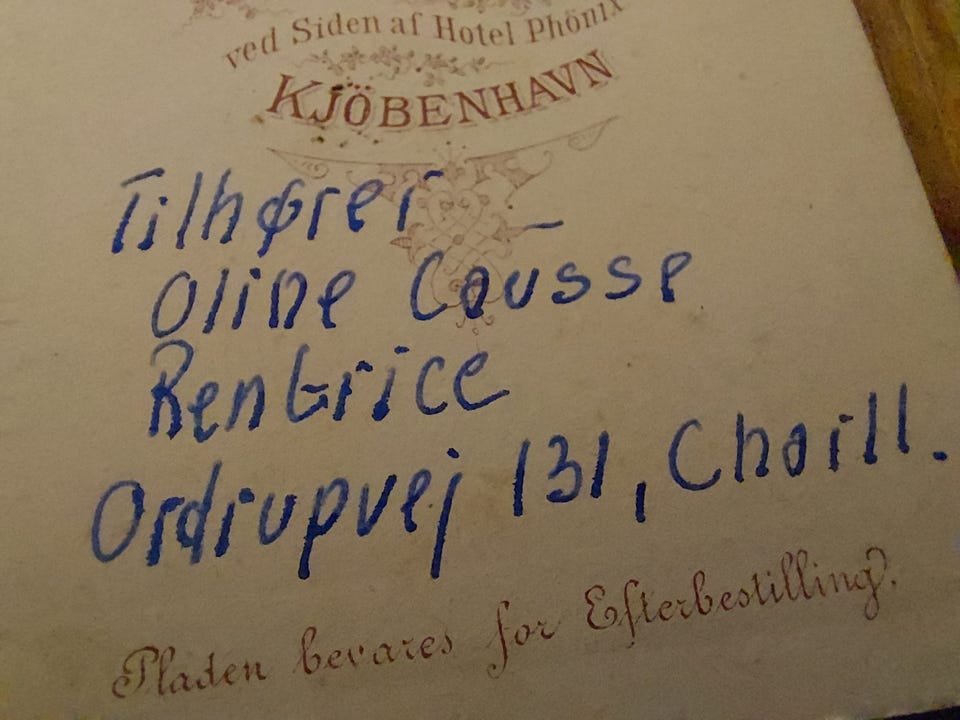 ved Siden af Hotel Phönix
KJÖBENHAVN
Tilhører
Oline Cousse
Rentrice
Ordrupvej 131, Charll.
Pladen bevares for Efterbestilling.